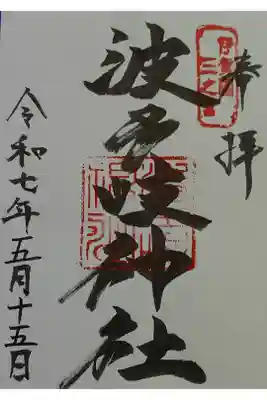 奉拝
波多岐神社
令和七年五月十五日